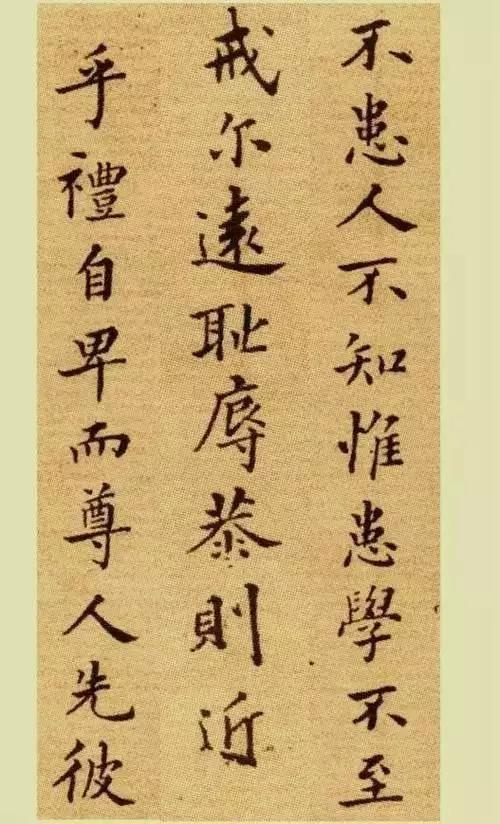 不患人不知惟患學不至
戒尔遠耻辱恭則近
乎禮自卑而尊人先彼